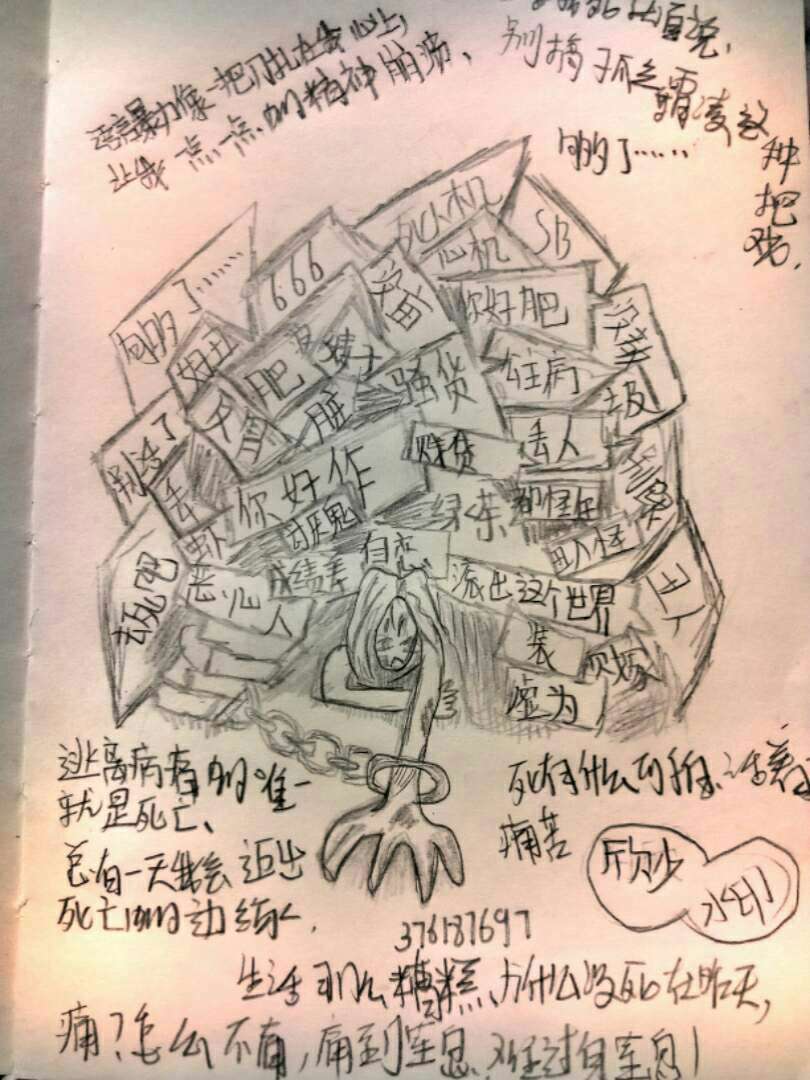 语言暴力像一把刀扎在我心上,
让我一点一点的精神崩溃、
别搞孤立霸凌这种把戏,
够了……
死心机
心机
SB
666
够了……
你好肥
垃圾
肥
公主病
骚货
脏
贱货
丢人
别活了
丢
你好作
都怪你
胆小鬼
绿茶
丑人怪
丑人
自恋
成绩差
去死吧
恶心
人
滚出这个世界
装
虚为
逃离病痛的唯一
就是死亡、
总有一天我会迈出
死亡的动
死有什么可怕、活着
痛苦
欣少
水印
376187697
生活那么糟糕、为什么没死在昨天,
痛?怎么不有,痛到窒息、难过自窒息!